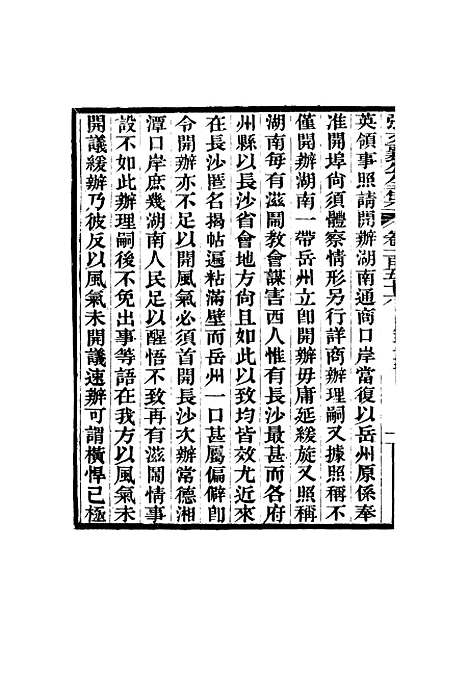 英領事照請開辦湖南通商口岸當復以岳州原係奉
准開埠尙須體察情形另行詳商辦理嗣又據照稱不
僅開辦湖南一帶岳州立卽開辦毋庸延緩旋又照稱
湖南每有滋鬧敎會謀害西人惟有長沙最甚而各府
州縣以長沙省會地方尙且如此以致均皆效尤近來
在長沙匿名揭帖遍粘滿壁而岳州一口甚屬偏僻卽
令開辦亦不足以開風氣必須首開長沙次辦常德湘
潭口岸庶幾湖南人民足以醒悟不致再有滋鬧情事
設不如此辦理嗣後不免出事等語在我方以風氣未
開議緩辦乃彼反以風氣未開議速辦可謂橫悍已極